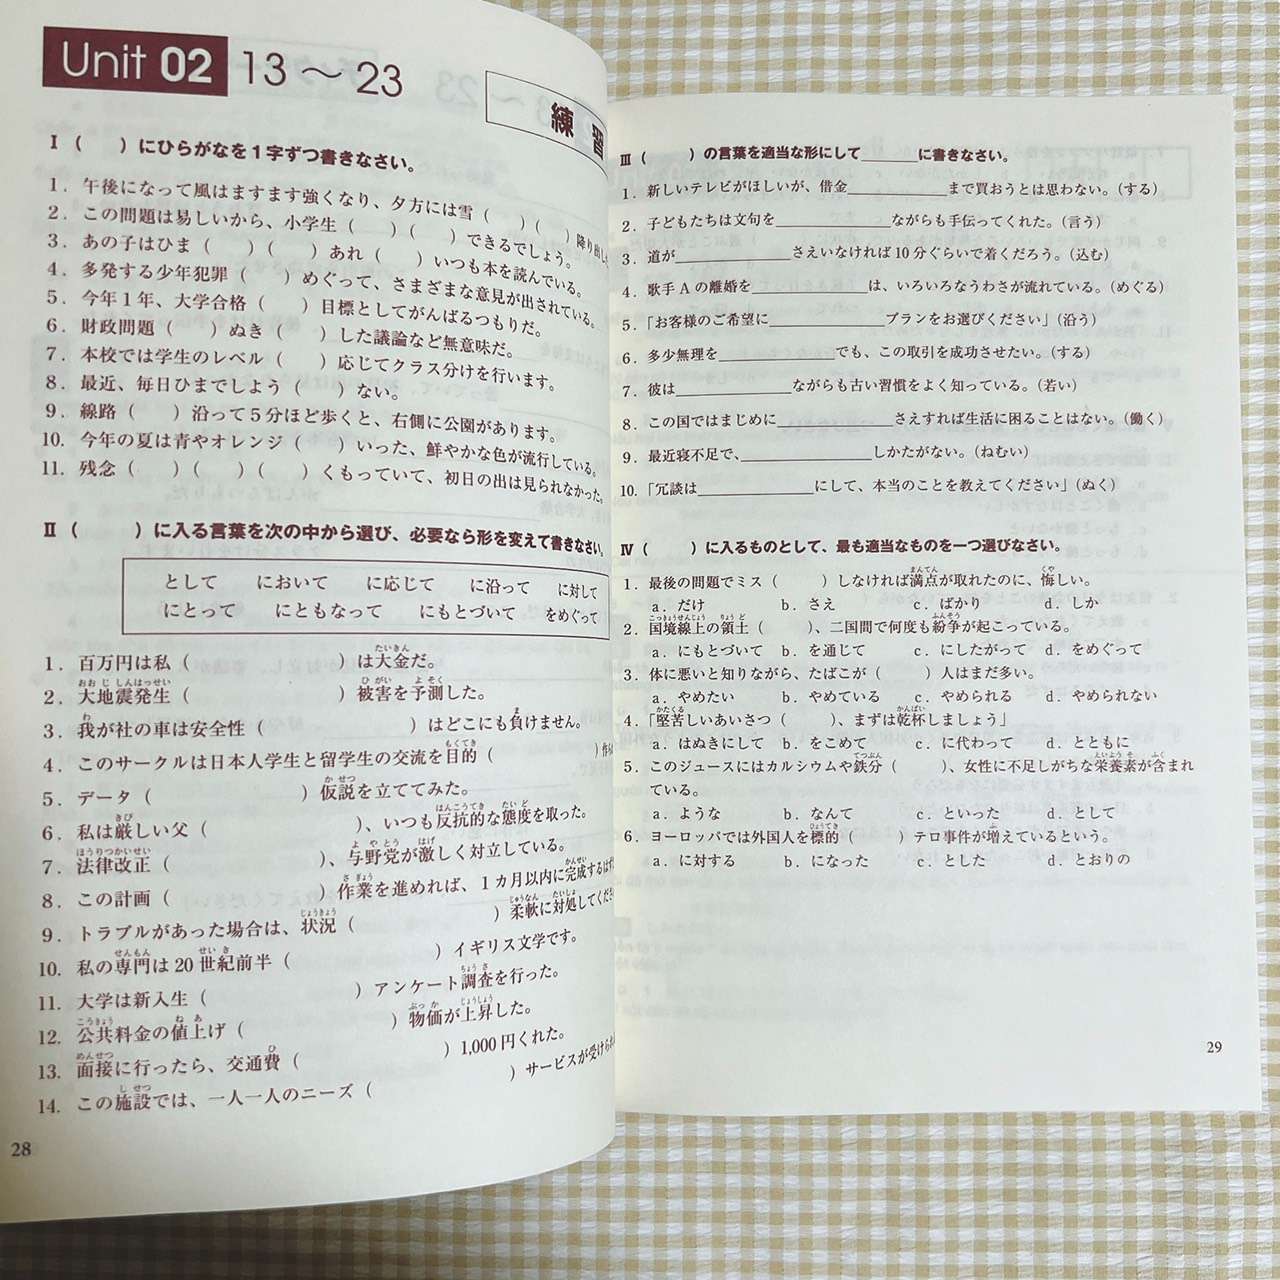 Unit 02 13～23
練習
Ⅰ （　　）にひらがなを１字ずつ書きなさい。
1. 午後になって風はますます強くなり、夕方には雪（　　）（　　）降り出した
2. この問題は易しいから、小学生（　　）（　　）できるでしょう。
3. あの子はひま（　　）（　　）あれ（　　）いつも本を読んでいる。
4. 多発する少年犯罪（　　）めぐって、さまざまな意見が出されている。
5. 今年１年、大学合格（　　）目標としてがんばるつもりだ。
6. 財政問題（　　）ぬき（　　）した議論など無意味だ。
7. 本校では学生のレベル（　　）応じてクラス分けを行います。
8. 最近、毎日ひまでしよう（　　）ない。
9. 線路（　　）沿って５分ほど歩くと、右側に公園があります。
10. 今年の夏は青やオレンジ（　　）いった、鮮やかな色が流行している。
11. 残念（　　）（　　）（　　）くもっていて、初日の出は見られなかった。
Ⅱ （　　）に入る言葉を次の中から選び、必要なら形を変えて書きなさい。
として　において　に応じて　に沿って　に対して
にとって　にともなって　にもとづいて　をめぐって
1. 百万円は私（　　）は大金だ。
たいきん
2. 大地震発生（　　）被害を予測した。
おおじしんはっせい　ひがい　よそく
3. 我が社の車は安全性（　　）はどこにも負けません。
わ　ま
4. このサークルは日本人学生と留学生の交流を目的（　　）作ら
もくてき
5. データ（　　）仮説を立ててみた。
かせつ
6. 私は厳しい父（　　）、いつも反抗的な態度を取った。
きび　はんこうてき　たいど
7. 法律改正（　　）、与野党が激しく対立している。
ほうりつかいせい　よやとう　はげ
8. この計画（　　）作業を進めれば、１カ月以内に完成するはず
さぎょう　かんせい
9. トラブルがあった場合は、状況（　　）柔軟に対処してくださ
じょうきょう　じゅうなん　たいしょ
10. 私の専門は20世紀前半（　　）イギリス文学です。
せんもん　せいき
11. 大学は新入生（　　）アンケート調査を行った。
ちょうさ
12. 公共料金の値上げ（　　）物価が上昇した。
こうきょう　ねあ　ぶっか　じょうしょう
13. 面接に行ったら、交通費（　　）1,000円くれた。
めんせつ　ひ
14. この施設では、一人一人のニーズ（　　）サービスが受けられ
しせつ
28
Ⅲ （　　）の言葉を適当な形にして＿＿＿に書きなさい。
1. 新しいテレビがほしいが、借金＿＿＿まで買おうとは思わない。（する）
2. 子どもたちは文句を＿＿＿ながらも手伝ってくれた。（言う）
3. 道が＿＿＿さえいなければ10分ぐらいで着くだろう。（込む）
4. 歌手Ａの離婚を＿＿＿は、いろいろなうわさが流れている。（めぐる）
5. 「お客様のご希望に＿＿＿プランをお選びください」（沿う）
6. 多少無理を＿＿＿でも、この取引を成功させたい。（する）
7. 彼は＿＿＿ながらも古い習慣をよく知っている。（若い）
8. この国ではまじめに＿＿＿さえすれば生活に困ることはない。（働く）
9. 最近寝不足で、＿＿＿しかたがない。（ねむい）
10. 「冗談は＿＿＿にして、本当のことを教えてください」（ぬく）
Ⅳ （　　）に入るものとして、最も適当なものを一つ選びなさい。
1. 最後の問題でミス（　　）しなければ満点が取れたのに、悔しい。
まんてん　くや
a. だけ　b. さえ　c. ばかり　d. しか
2. 国境線上の領土（　　）、二国間で何度も紛争が起こっている。
こっきょうせんじょう　りょうど　ふんそう
a. にもとづいて　b. を通じて　c. にしたがって　d. をめぐって
3. 体に悪いと知りながら、たばこが（　　）人はまだ多い。
a. やめたい　b. やめている　c. やめられる　d. やめられない
4. 「堅苦しいあいさつ（　　）、まずは乾杯しましょう」
かたくる　かんぱい
a. はぬきにして　b. をこめて　c. に代わって　d. とともに
5. このジュースにはカルシウムや鉄分（　　）、女性に不足しがちな栄養素が含まれ
てつぶん　えいようそ　ふく
ている。
a. ような　b. なんて　c. といった　d. として
6. ヨーロッパでは外国人を標的（　　）テロ事件が増えているという。
ひょうてき　ふ
a. に対する　b. になった　c. とした　d. とおりの
29